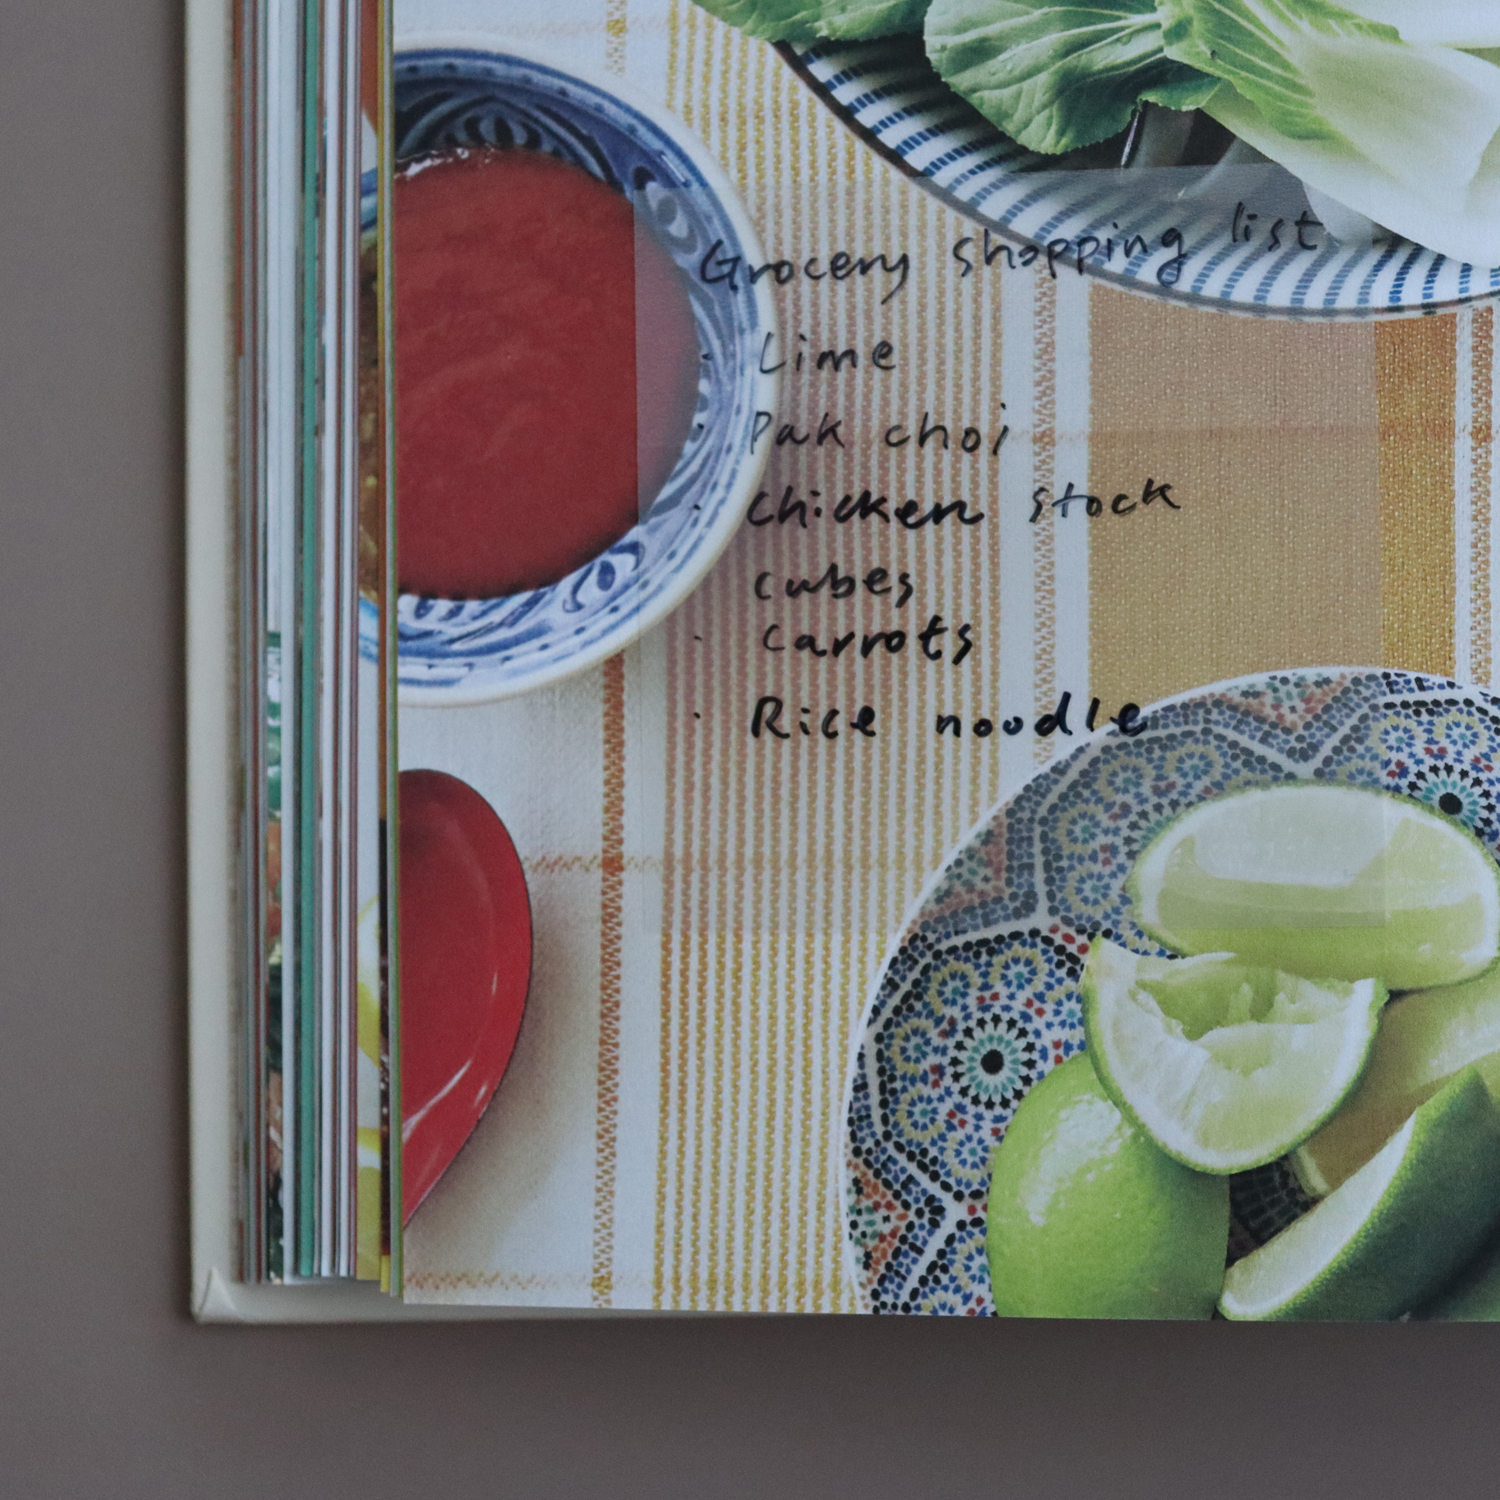 Grocery shopping list :
· Lime
· Pak choi
· Chicken stock
cubes
· Carrots
· Rice noodle